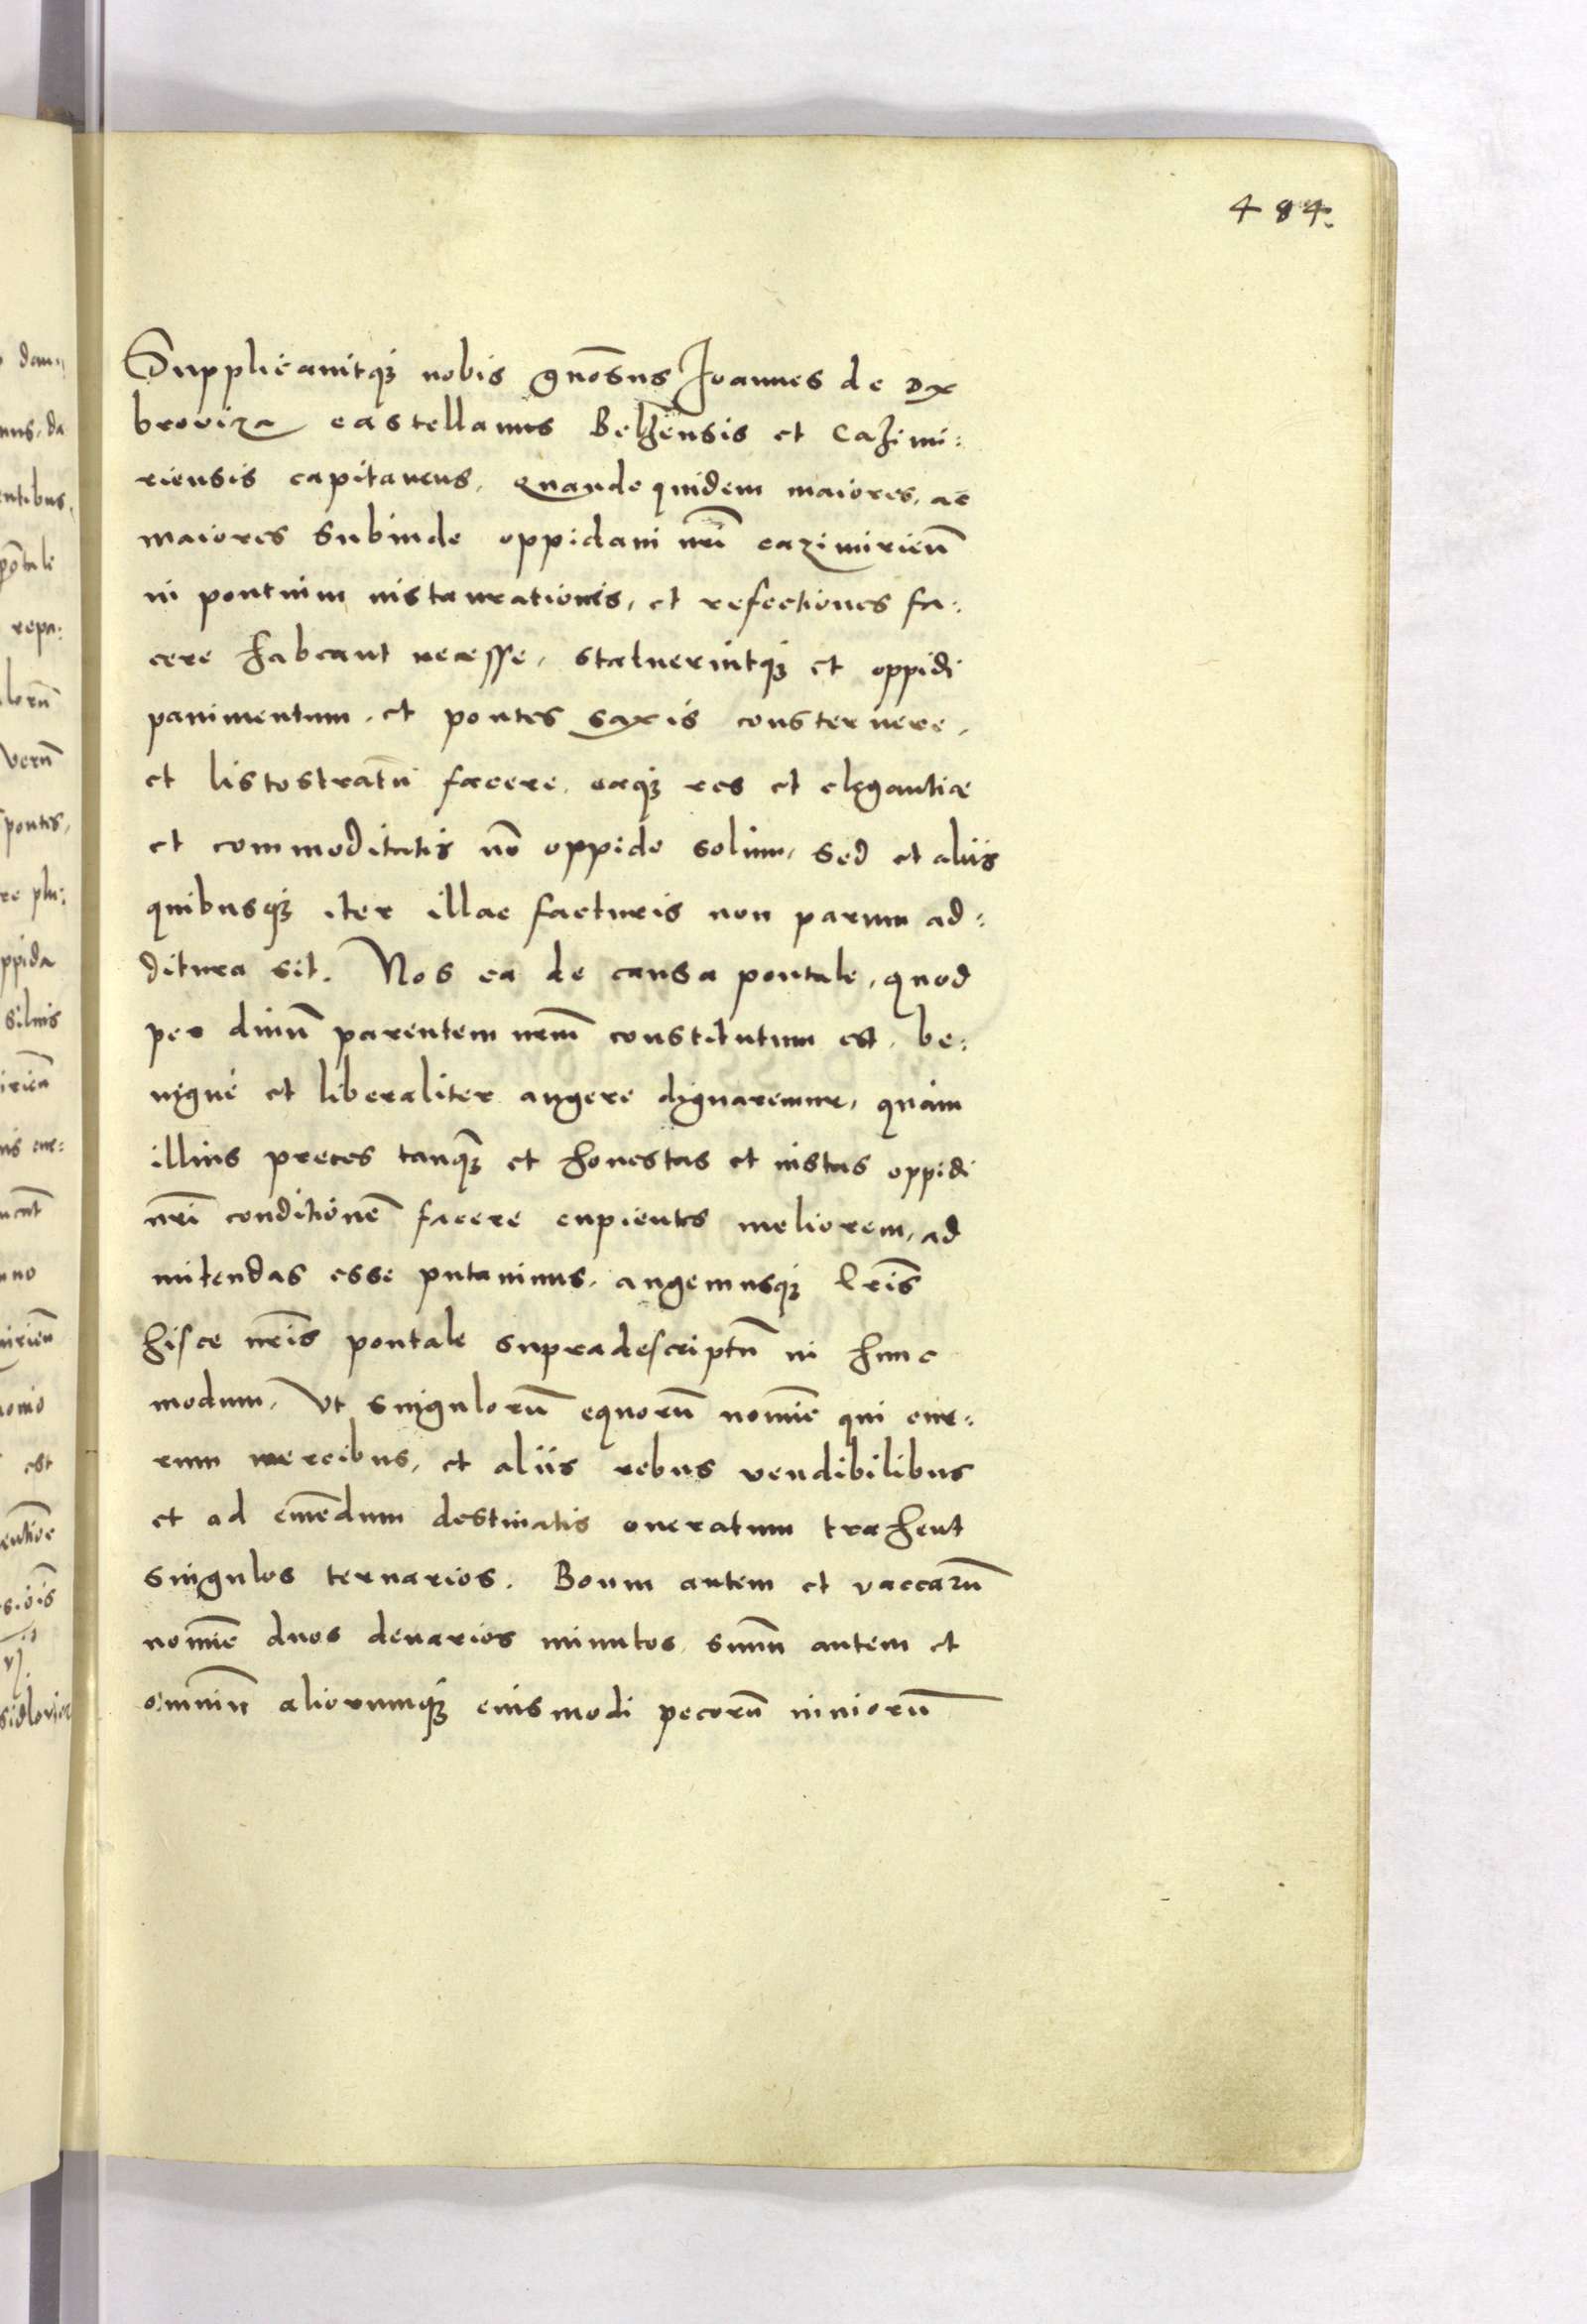 484.
Supplicauitq3 nobis gnōsus Joannes de Dą
browiza castellanus Belzensis et Cazimi:
riensis capitaneus. Quandoquidem maiores, ac
maiores subinde oppidani nr̄i cazimirieñ
in pontium instaurationis, et refectiones fa:
cere habeant necesse, statuerintq3 et oppidi
pauimentum, et pontes saxis consternere,
et listostratū facere, eaq3 res et elegantiæ
et commoditatis nō oppido solum, sed et aliis
quibusq3 iter illac facturis non parum ad:
ditura sit. Nos ea de causa pontale, quod
per diuū parentem nr̄m constitutum est, be:
nignè et liberaliter augere dignaremur, quàm
illius preces tanq̄3 et honestas et iustas oppidi
nr̄i conditionē facere cupientes meliorem, ad
mitendas esse putauimus, augemusq3 lr̄is
hisce nr̄is pontale supradescriptū in hunc
modum, Vt singulorū equorū nomīe qui cur:
rum mercibus, et aliis rebus vendibilibus
et ad emēdum destinatis oneratum trahent
singulos ternarios. Boum autem et vaccarū
nomīe duos denarios minutos, suum autem et
omniū aliorumq3 eiusmodi pecorū iuniorū